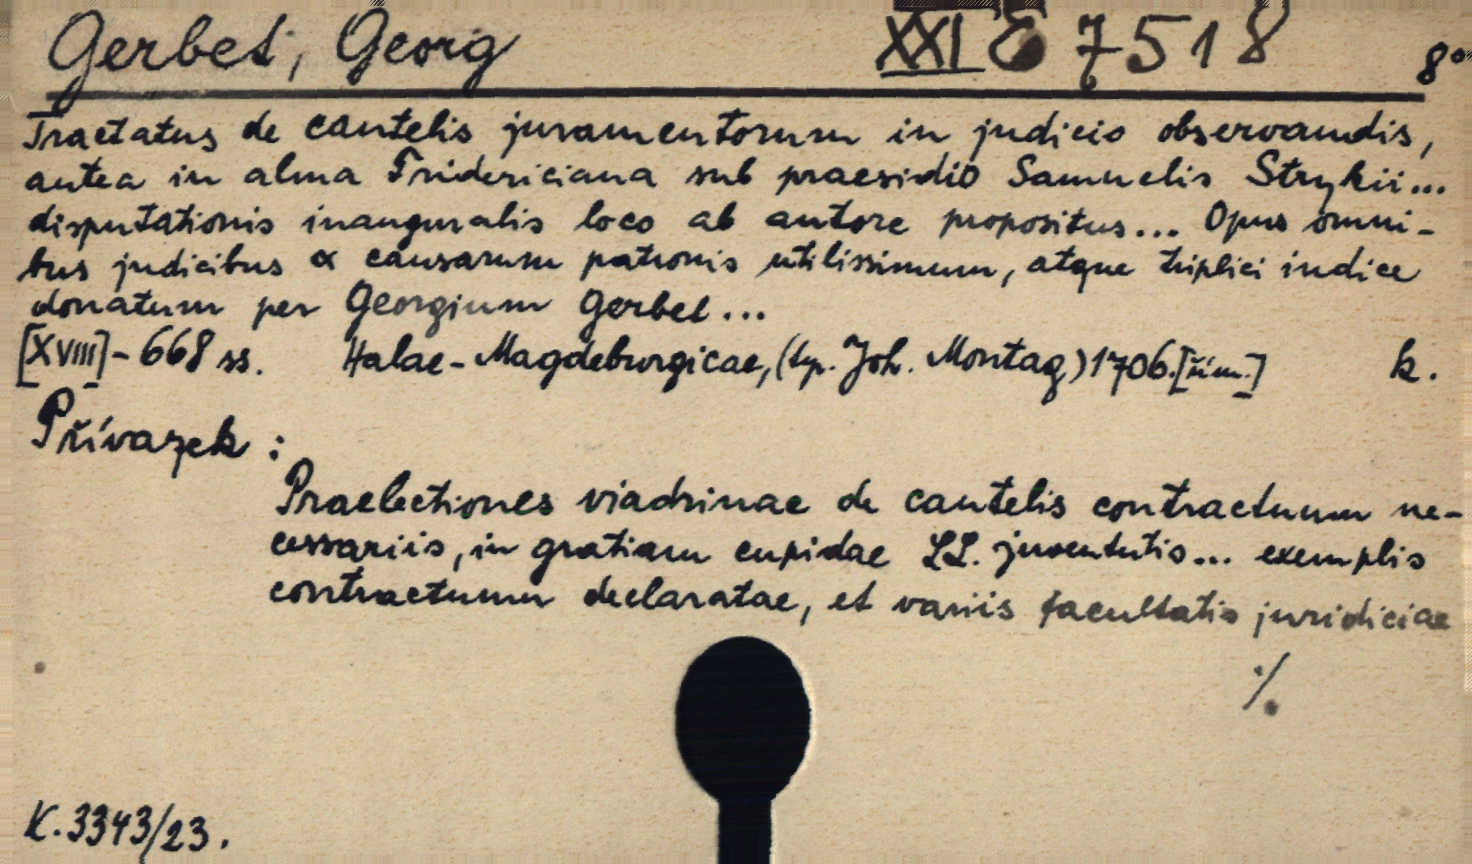 Gerbet, Georg XXI E 7518 8°
Tractatus de cautelis juramentorum in judicio observandis,
antea in alma Fridericiana sub praesidio Samuelis Strykii...
disputationis inauguralis loco ab autore propositus... Opus omni-
bus judicibus & causarum patronis utilissimum, atque triplici indice
donatum per Georgium Gerbet...
[XVIII]-668 ss. Halae-Magdeburgicae, (typ. Joh. Montag) 1706.[řím.] k.
Přívazek:
Praelectiones viadrinae de cautelis contractuum ne-
cessariis, in gratiam cupidae LL. juventutis... exemplis
contractuum declaratae, et variis facultatis juridiciae
./.
K.3343/23.